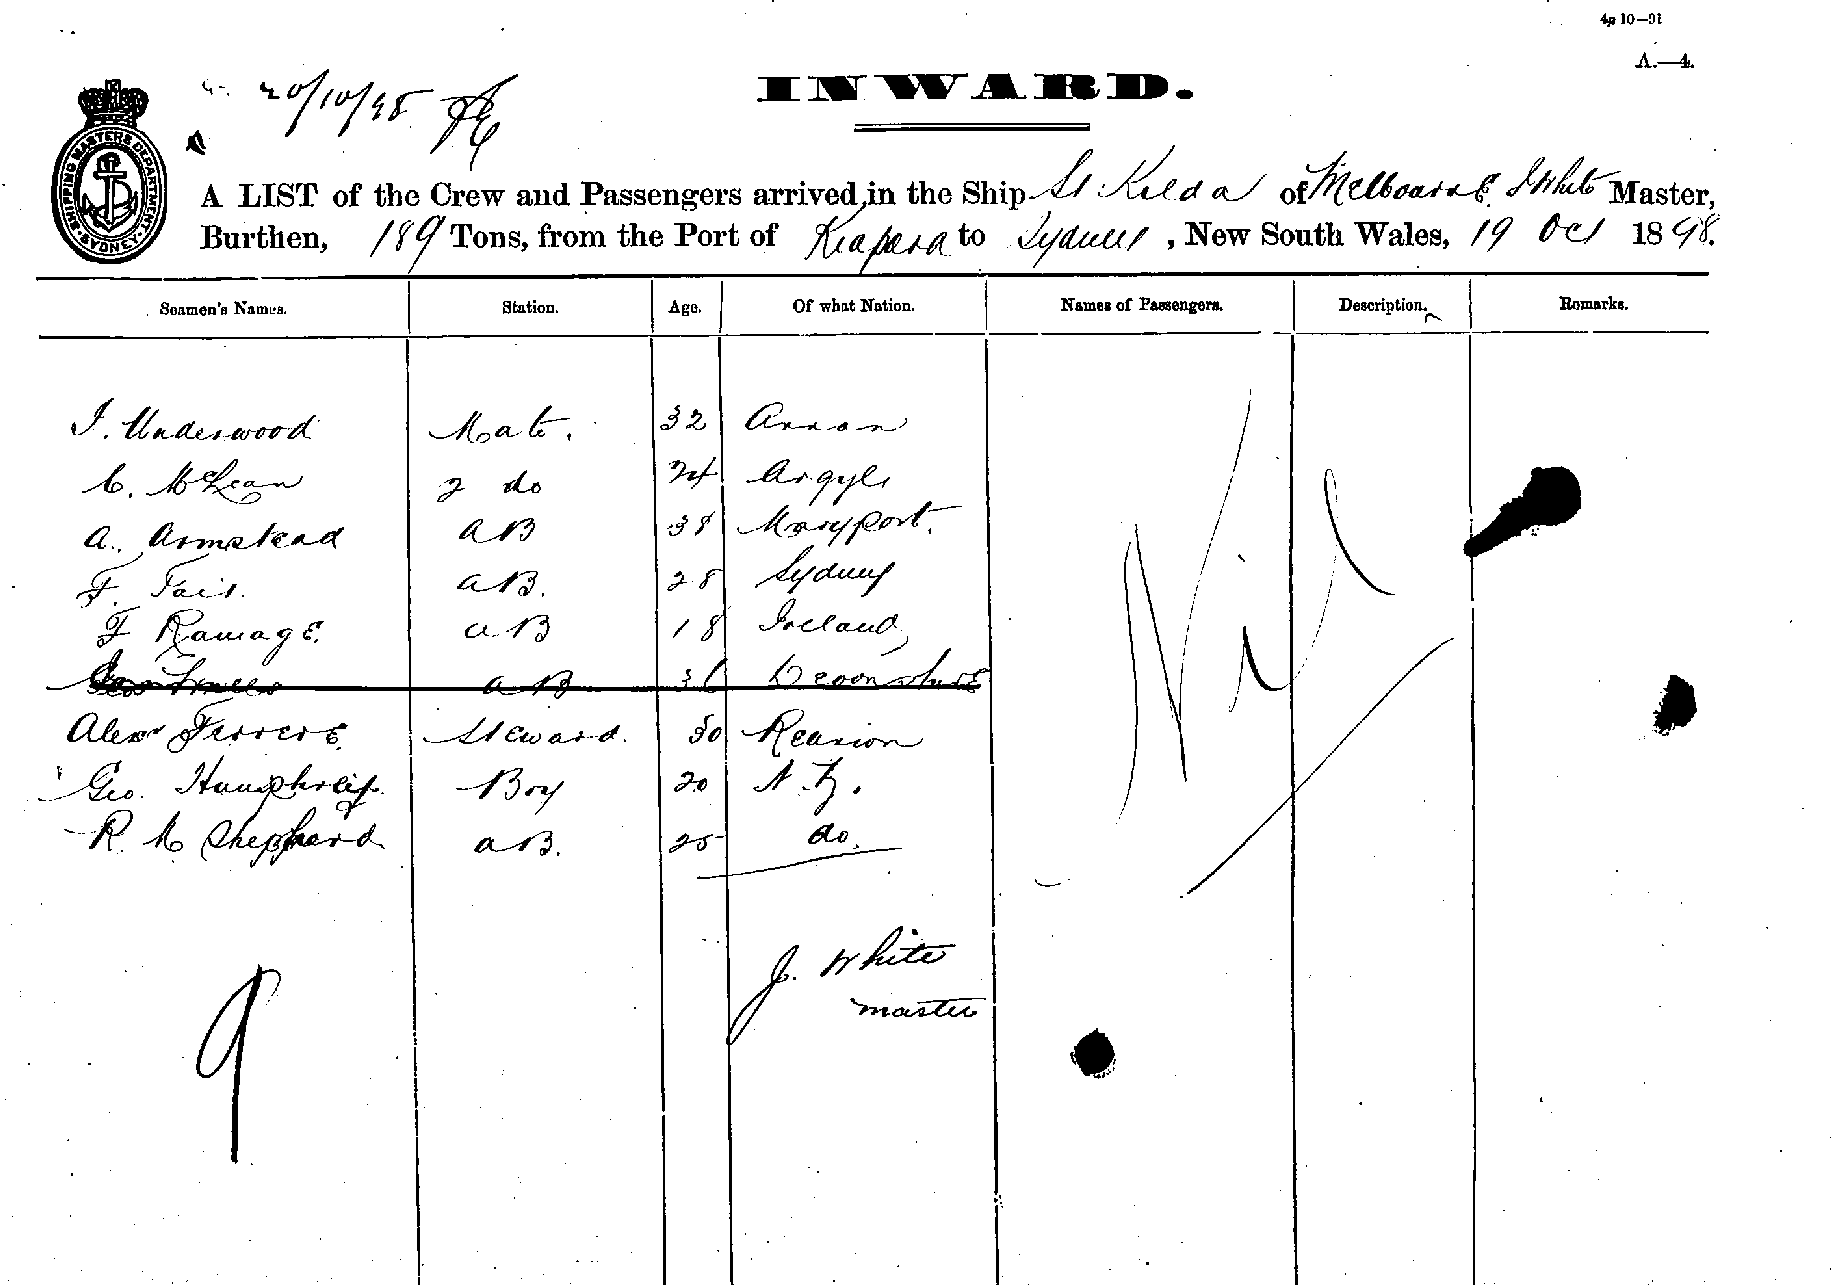 4p 10—91
A.—4.
20/10/98
INWARD.
SHIPPING MASTERS DEPARTMENT SYDNEY
A LIST of the Crew and Passengers arrived in the Ship St Kilda of Melbourne J White Master,
Burthen, 189 Tons, from the Port of Kiapara to Sydney, New South Wales, 19 Oct 1898.
Seamen's Names. Station. Age. Of what Nation. Names of Passengers. Description. Remarks.
J. Underwood Mate. 32 Arran
C. McLean 2 do 24 Argyle
A. Armstead AB 38 Maryport.
F. Tait. AB. 28 Sydney
F Ramage. AB 18 Ireland
AB 36 Devonshire
Alex Ferrere. Steward. 30 Reunion
Geo. Humphreys. Boy 20 N.Z.
R. M Sheppard AB. 25 do.
Nil
J. White
master
9